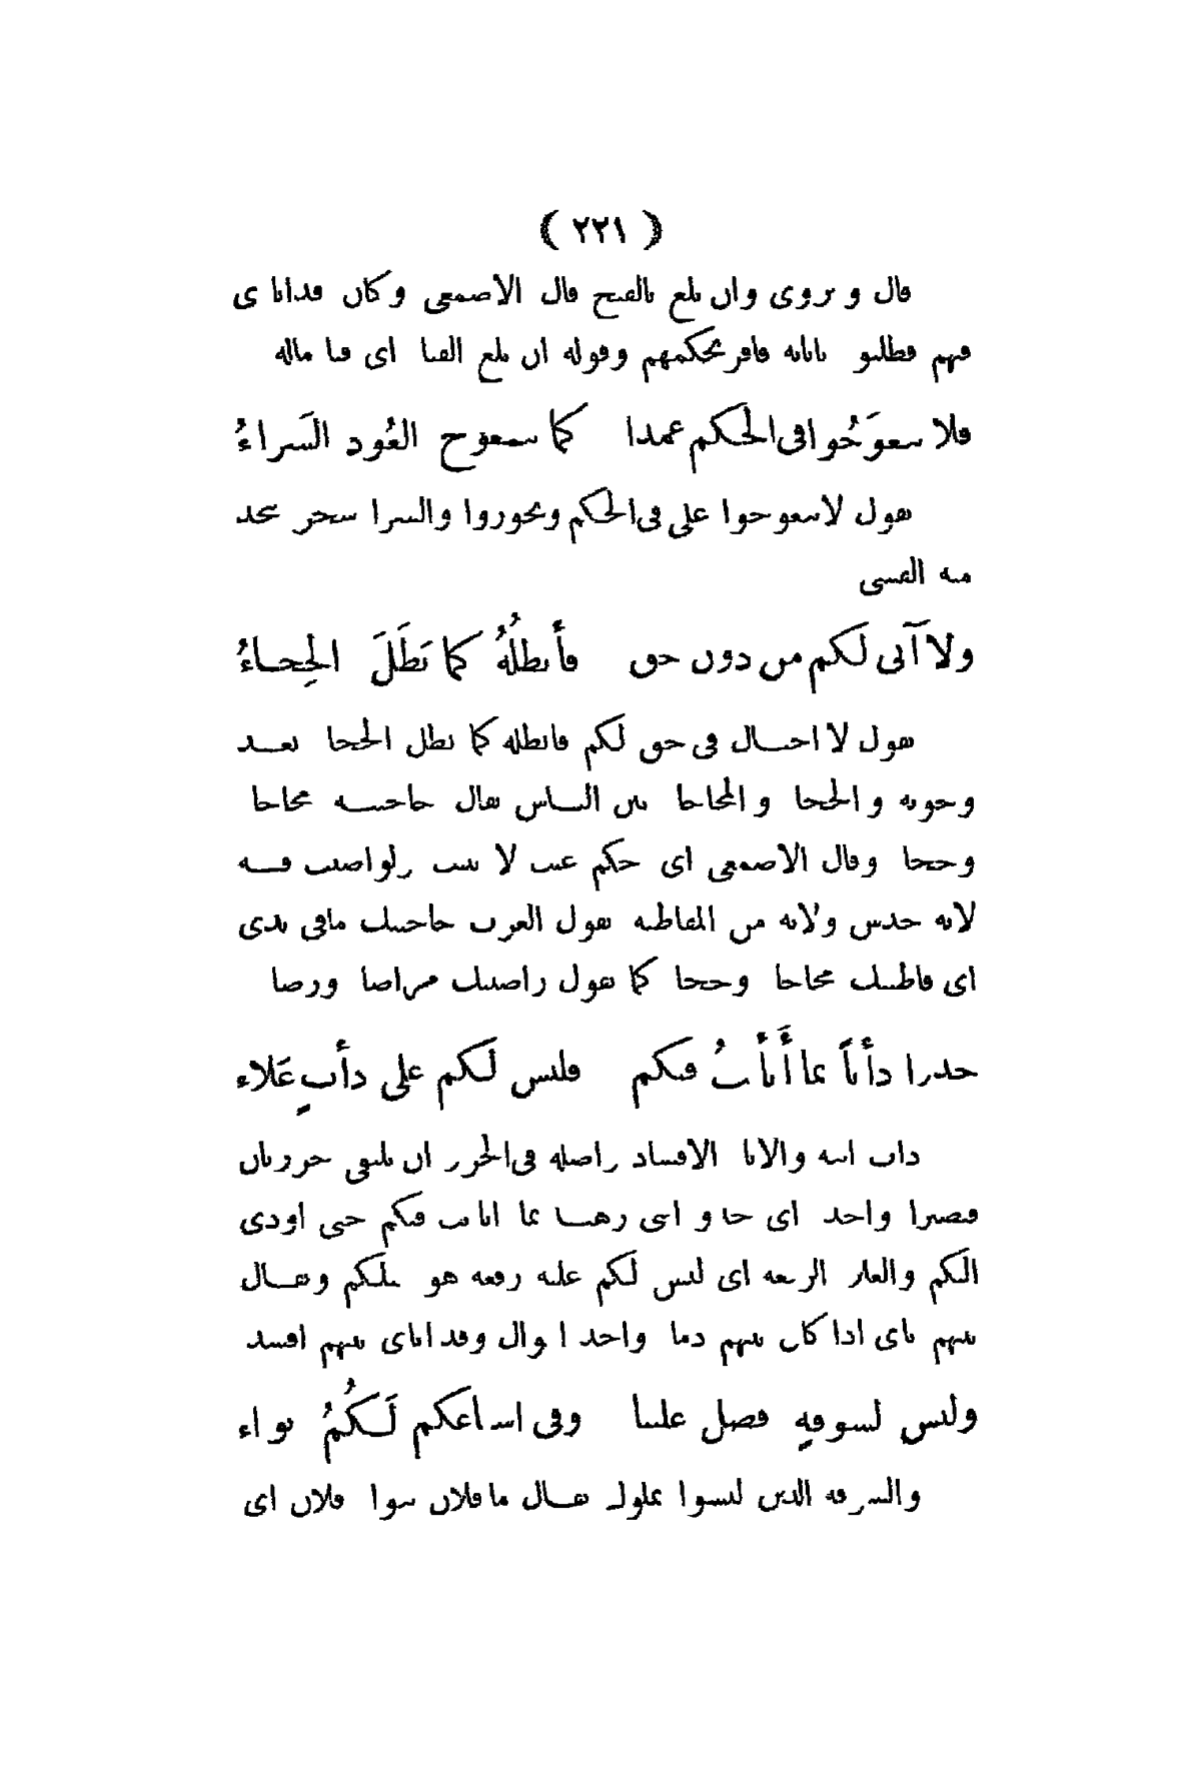 ( ٢٢١ )
قال و يروى وان يلع بالفتح قال الاصمعى وكان قد اتا ى
فيهم فطلبو باثابه فاقر بحكمهم وقوله ان يلع الفنا اى فنا ماله
فلا تتعوَجُوا فى الحكم عمدا كما يتعوج العُود السَراءُ
يقول لا تتعوجوا على فى الحكم وتجوروا والسرا شجر تتخذ
منه القسى
ولا آتى لكم من دون حق فأبطلُهُ كما بَطَلَ الحِجاءُ
يقول لا احتال فى حق لكم فابطله كما بطل الحجا بعد
وجوبه والحجا والمحاجا بين الناس يقال حاجيته محاجا
وحجا وقال الاصمعى اى حكم عيب لا يثبت
لانه حدس ولانه من المفاطنه تقول العرب حاجيتك مافى يدى
اى فاطنتك محاجا وحجا كما تقول راضيتك مراضا ورضا
دأباً بما أَثأَبتُ فيكم فليس لكم على دأبٍ عَلاء
داب الافساد فى الخرز ان يلتقى خرزتان
فتصيرا واحد اى فيكم حتى اودى
اليكم اى ليس لكم عليه رفعه هو مثلكم ويقال
بينهم ثاى اذا كان بينهم دما واحد اقوال وقد اثاى بينهم افسد
وليس لسوقةٍ فضل علينا وفى اشياعكم لَكُمُ بواء
والسوقه الذين ليسوا بملوك يقال ما فلان بيوا فلان اى